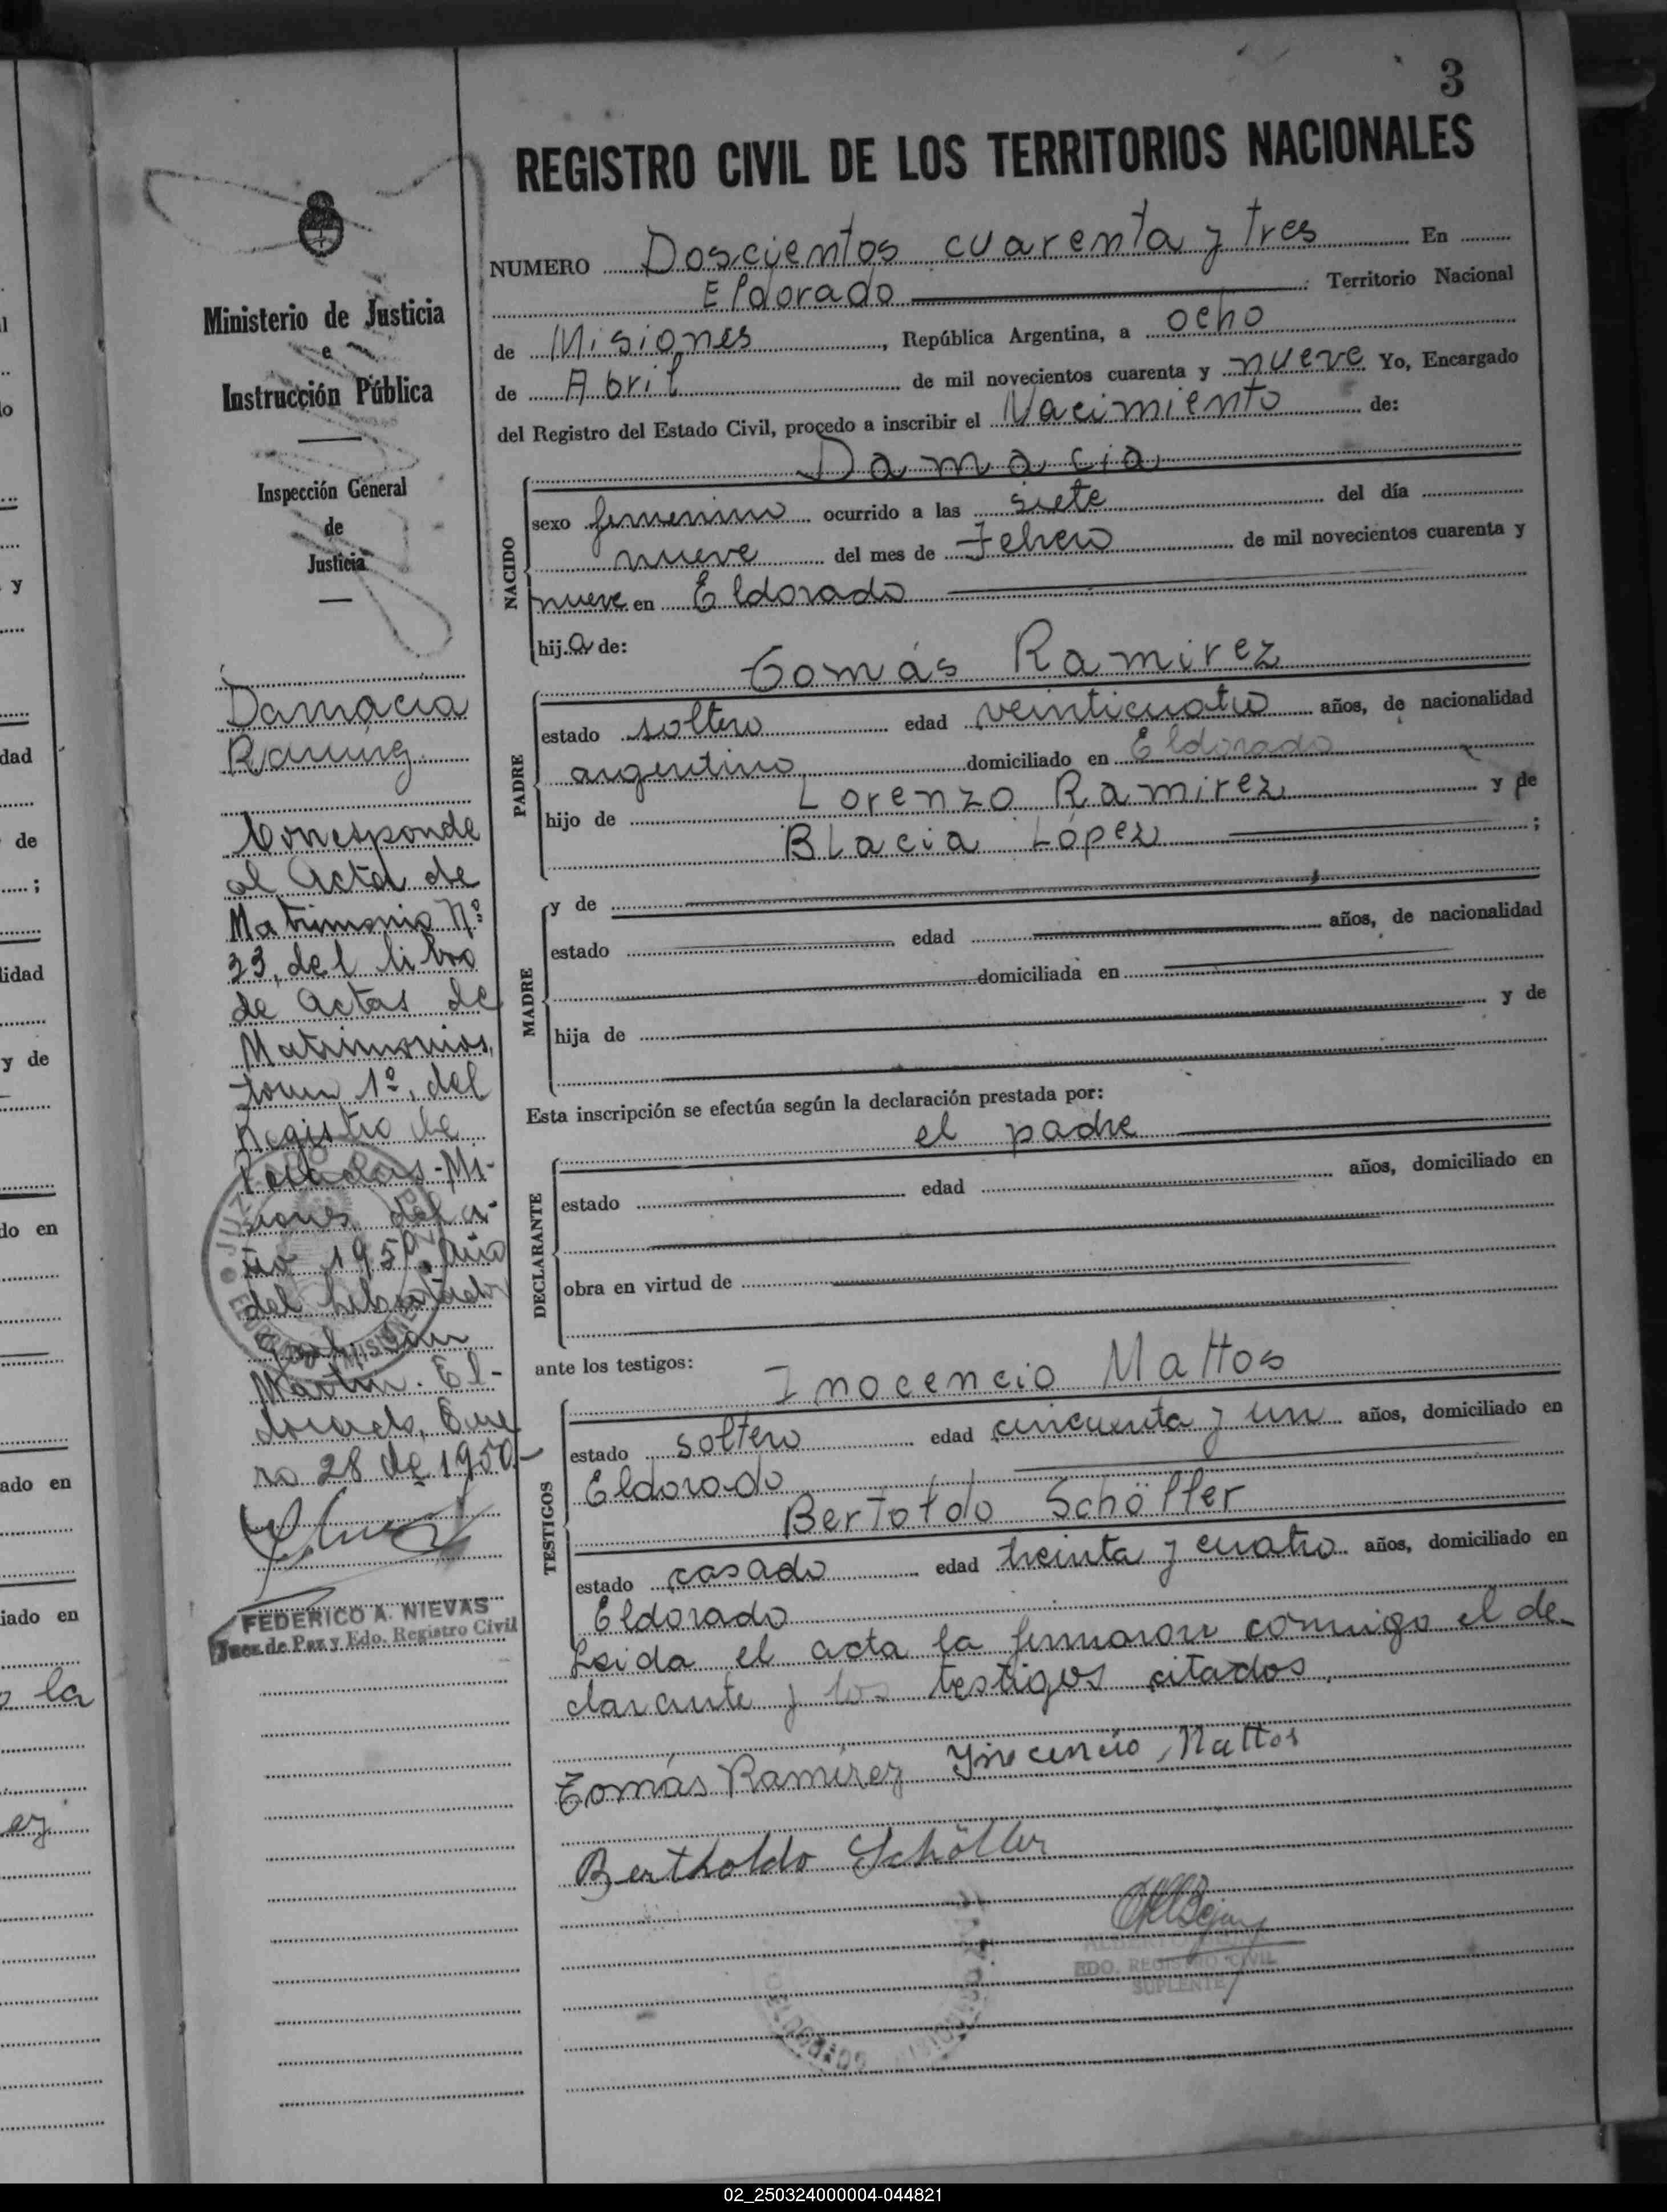 3
REGISTRO CIVIL DE LOS TERRITORIOS NACIONALES
NUMERO Doscientos cuarenta y tres En
Eldorado Territorio Nacional
de Misiones, República Argentina, a ocho
de Abril de mil novecientos cuarenta y nueve Yo, Encargado
del Registro del Estado Civil, procedo a inscribir el Nacimiento de:
Damacia
NACIDO
sexo femenino ocurrido a las siete del día
nueve del mes de Febrero de mil novecientos cuarenta y
nueve en Eldorado
hija de:
Tomás Ramirez
PADRE
estado soltero edad veinticuatro años, de nacionalidad
argentino domiciliado en Eldorado
hijo de Lorenzo Ramirez y de
Blacia López ;
MADRE
y de
estado edad años, de nacionalidad
domiciliada en
hija de y de
Esta inscripción se efectúa según la declaración prestada por:
el padre
DECLARANTE
estado edad años, domiciliado en
obra en virtud de
ante los testigos:
Inocencio Mattos
TESTIGOS
estado soltero edad cincuenta y un años, domiciliado en
Eldorado
Bertoldo Schöller
estado casado edad treinta y cuatro años, domiciliado en
Eldorado
Leida el acta la firmaron conmigo el de-
clarante y los testigos citados.
Tomás Ramírez Inocencio Mattos
Bertholdo Schöller
EDO. REGISTRO CIVIL
SUPLENTE
Ministerio de Justicia
e
Instrucción Pública
Inspección General
de
Justicia
Damacia
Ramirez.
Corresponde
al Acta de
Matrimonio Nº
23, del libro
de Actas de
Matrimonios,
tomo 1º, del
Registro de
-Mi-
siones del a-
ño 1950. Año
del Libertador
Gral. San
Martin. El-
dorado, Ene-
ro 28 de 1950.-
FEDERICO A. NIEVAS
Juez de Paz y Edo. Registro Civil
l
lo
y
dad
de
;
lidad
y de
do en
ado en
iado en
la
ez
02_250324000004-044821